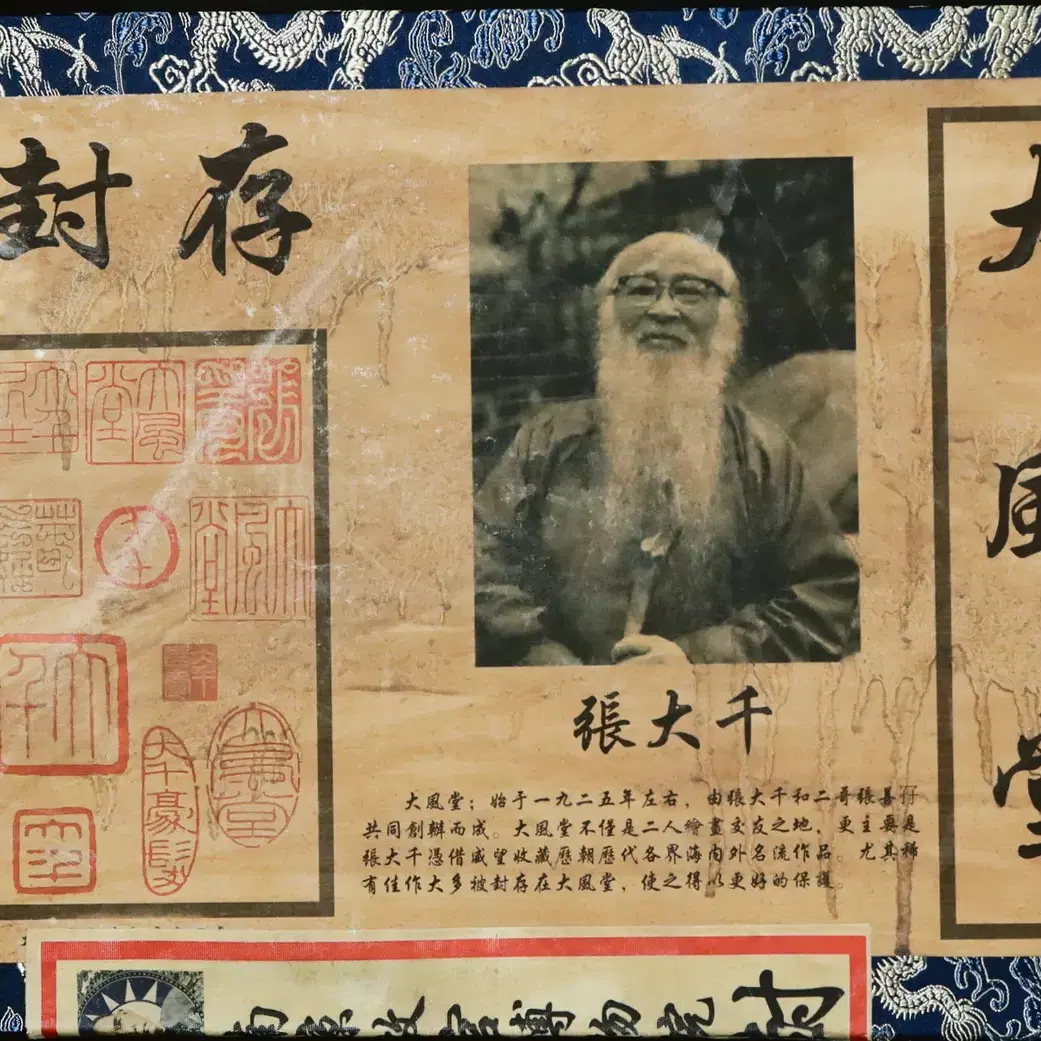 封存
大風堂
張大千
大風堂；始于一九二五年左右，由張大千和二哥張善孖
共同創辦而成。大風堂不僅是二人繪畫交友之地，更主要是
張大千憑借威望收藏歷朝歷代各界海内外名流作品。尤其稀
有佳作大多被封存在大風堂，使之得以更好的保護。
大風堂
大千
大風堂
大千
大千豪髮